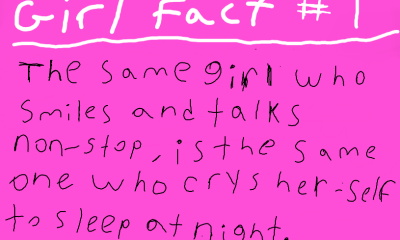 Girl Fact #1
The same girl who
smiles and talks
non-stop, is the same
one who crys her-self
to sleep at night.